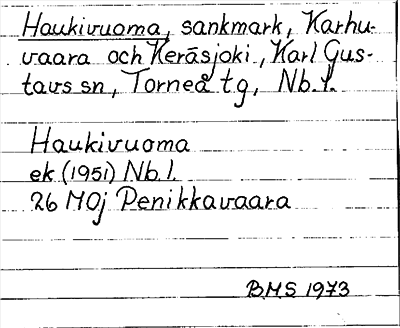 Haukivuoma, sankmark, Karhu-
vaara och Keräsjoki, Karl Gus-
tavs sn, Torneå tg, Nb. l.
Haukivuoma
ek (1951) Nb. l.
26 M0j Penikkavaara
BMS 1973